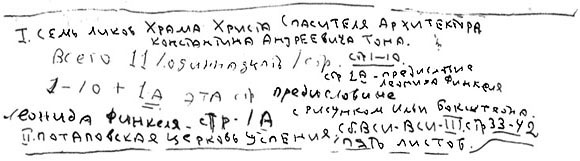 I. Семь ликов Храма Христа Спасителя Архитектора
Константина Андреевича Тона.
Всего 11 /одиннадцать/ стр. стр 1-10.
стр 1А - предисловие
Леонида Финкеля
1-10 + 1А эта стр предисловие
Леонида Финкеля. стр. 1А с рисунком Ильи Бокштейна.
II. Потаповская церковь Успения, сб. ВСИ-ВСИ-III стр 33-42
пять листов.